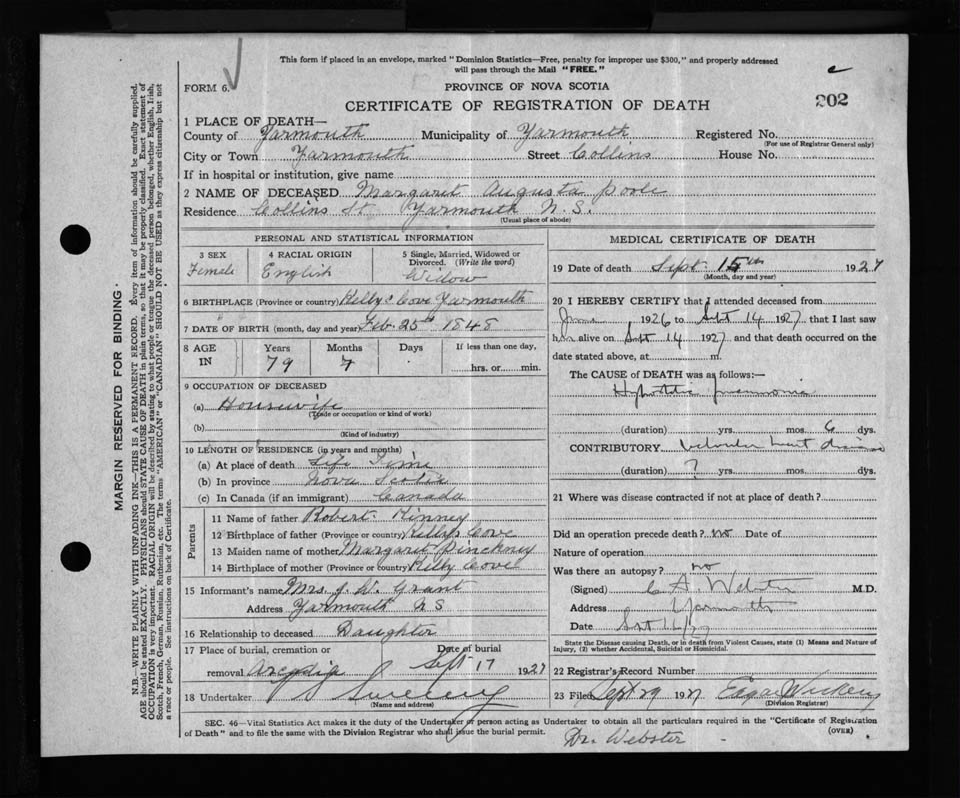 This form if placed in an envelope, marked "Dominion Statistics—Free, penalty for improper use $300," and properly addressed
will pass through the Mail "FREE."
FORM 6.
PROVINCE OF NOVA SCOTIA
CERTIFICATE OF REGISTRATION OF DEATH
202
1 PLACE OF DEATH—
County of Yarmouth Municipality of Yarmouth Registered No.
(For use of Registrar General only)
City or Town Yarmouth Street Collins House No.
If in hospital or institution, give name
2 NAME OF DECEASED Margaret Augusta Poole
Residence Collins St Yarmouth N.S.
(Usual place of abode)
PERSONAL AND STATISTICAL INFORMATION
3 SEX
Female
4 RACIAL ORIGIN
English
5 Single, Married, Widowed or
Divorced. (Write the word)
Widow
6 BIRTHPLACE (Province or country) Kellys Cove Yarmouth
7 DATE OF BIRTH (month, day and year) Feb. 25th 1848
8 AGE
IN
Years
79
Months
7
Days
If less than one day,
hrs. or min.
9 OCCUPATION OF DECEASED
(a) Housewife
(Trade or occupation or kind of work)
(b)
(Kind of industry)
10 LENGTH OF RESIDENCE (in years and months)
(a) At place of death Life Time
(b) In province Nova Scotia
(c) In Canada (if an immigrant) Canada
Parents
11 Name of father Robert Kinney
12 Birthplace of father (Province or country) Kellys Cove
13 Maiden name of mother Margaret Pinckney
14 Birthplace of mother (Province or country) Kelly Cove
15 Informant's name Mrs. J. W. Grant
Address Yarmouth N S
16 Relationship to deceased Daughter
17 Place of burial, cremation or
removal Arcadia
Date of burial
Sept 17 1927
18 Undertaker Sweeny
(Name and address)
MEDICAL CERTIFICATE OF DEATH
19 Date of death Sept. 15th 1927
(Month, day and year)
20 I HEREBY CERTIFY that I attended deceased from
June 1926 to Sept 14 1927 that I last saw
her alive on Sept 14 1927 and that death occurred on the
date stated above, at m.
The CAUSE OF DEATH was as follows:—
Hypostatic pneumonia
(duration) yrs. mos. 6 dys.
CONTRIBUTORY Valvular heart disease
(duration) ? yrs. mos. dys.
21 Where was disease contracted if not at place of death?
Did an operation precede death? no Date of
Nature of operation
Was there an autopsy? no
(Signed) C A Webster M.D.
Address Yarmouth
Date Sept
State the Disease causing Death, or in death from Violent Causes, state (1) Means and Nature of
Injury, (2) whether Accidental, Suicidal or Homicidal.
22 Registrar's Record Number
23 Filed Sept 29 1927 Edgar Vickery
(Division Registrar)
SEC. 46—Vital Statistics Act makes it the duty of the Undertaker or person acting as Undertaker to obtain all the particulars required in the "Certificate of Registration
of Death" and to file the same with the Division Registrar who shall issue the burial permit.
(OVER)
Dr. Webster
MARGIN RESERVED FOR BINDING
N.B.—WRITE PLAINLY WITH UNFADING INK—THIS IS A PERMANENT RECORD. Every item of information should be carefully supplied.
AGE should be stated EXACTLY. PHYSICIANS should STATE CAUSE OF DEATH in plain terms, so that it may be properly classified. Exact statement of
OCCUPATION is very important. RACIAL ORIGIN will be described by stating to what people or tongue the deceased person belonged, whether English, Irish,
Scotch, French, German, Russian, Ruthenian, etc. The terms "AMERICAN" or "CANADIAN" SHOULD NOT BE USED as they express citizenship but not
a race or people. See instructions on back of Certificate.